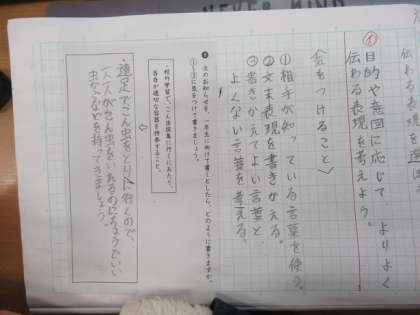 伝わる表現を選ぼ
イ 目的や意図に応じて よりよく
伝わる表現を考えよう。
〈気をつけること〉
① 相手が知っている言葉を使う。
② 文末表現を書きかえる。
③ 書きかえてよい言葉と
よくない言葉を考える。
次のお知らせを、一年生に向けて書くとしたら、どのように書きますか。
①〜③に気をつけて書きましょう。
校外学習で、こん虫採集に行くにあたり、
各自が適切な容器を持参すること。
遠足でこん虫をとりに行くので、
一人一人がこん虫をいれるのにちょうどいい
虫かごなどを持ってきましょう。